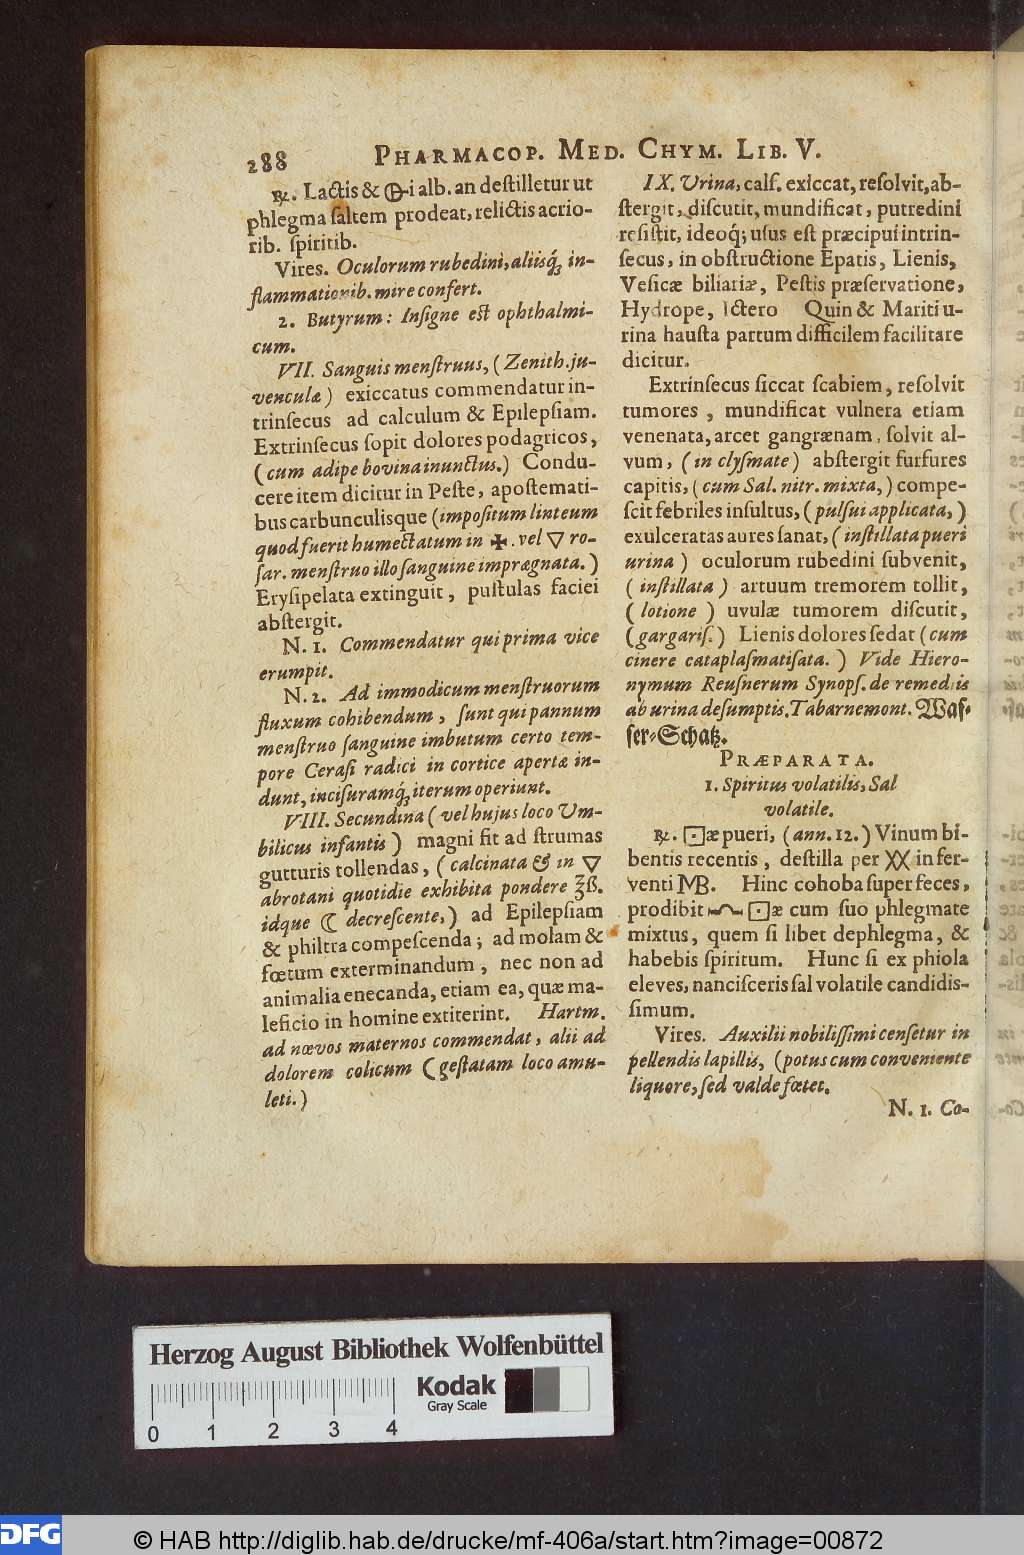 288 PHARMACOP. MED. CHYM. LIB. V.
℞. Lactis & 🜕-i alb. an deſtilletur ut
phlegma ſaltem prodeat, relictis acrio-
rib. ſpiritib.
Vires. Oculorum rubedini, aliisq́ꝫ in-
flammationib. mire confert.
2. Butyrum: Inſigne eſt ophthalmi-
cum.
VII. Sanguis menſtruus, (Zenith. ju-
venculæ) exiccatus commendatur in-
trinſecus ad calculum & Epilepſiam.
Extrinſecus ſopit dolores podagricos,
(cum adipe bovina inunctus.) Condu-
cere item dicitur in Peſte, apoſtemati-
bus carbunculisque (impoſitum linteum
quod fuerit humectatum in 🜊. vel 🜄 ro-
ſar. menſtruo illo ſanguine imprægnata.)
Eryſipelata extinguit, puſtulas faciei
abſtergit.
N. 1. Commendatur qui prima vice
erumpit.
N. 2. Ad immodicum menſtruorum
fluxum cohibendum, ſunt qui pannum
menſtruo ſanguine imbutum certo tem-
pore Ceraſi radici in cortice apertæ in-
dunt, inciſuramq́ꝫ iterum operiunt.
VIII. Secundina (vel hujus loco Um-
bilicus infantis) magni fit ad ſtrumas
gutturis tollendas, (calcinata & in 🜄
abrotani quotidie exhibita pondere ʒß.
idque ☾ decreſcente,) ad Epilepſiam
& philtra compeſcenda; ad molam &
fœtum exterminandum, nec non ad
animalia enecanda, etiam ea, quæ ma-
leficio in homine extiterint. Hartm.
ad nævos maternos commendat, alii ad
dolorem colicum (geſtatam loco amu-
leti.)
IX. Urina, calf. exiccat, reſolvit, ab-
ſtergit, diſcutit, mundificat, putredini
reſiſtit, ideoq́; uſus eſt præcipui intrin-
ſecus, in obſtructione Epatis, Lienis,
Veſicæ biliariæ, Peſtis præſervatione,
Hydrope, Ictero Quin & Mariti u-
rina hauſta partum difficilem facilitare
dicitur.
Extrinſecus ſiccat ſcabiem, reſolvit
tumores, mundificat vulnera etiam
venenata, arcet gangrænam, ſolvit al-
vum, (in clyſmate) abſtergit furfures
capitis, (cum Sal. nitr. mixta,) compe-
ſcit febriles inſultus, (pulſui applicata,)
exulceratas aures ſanat, (inſtillata pueri
urina) oculorum rubedini ſubvenit,
(inſtillata) artuum tremorem tollit,
(lotione) uvulæ tumorem diſcutit,
(gargariſ.) Lienis dolores ſedat (cum
cinere cataplaſmatiſata.) Vide Hiero-
nymum Reuſnerum Synopſ. de remediis
ab urina deſumptis. Tabarnemont. Waſ-
ſer-Schatz.
PRÆPARATA.
1. Spiritus volatilis, Sal
volatile.
℞. ⊡æ pueri, (ann. 12.) Vinum bi-
bentis recentis, deſtilla per XX in fer-
venti MB. Hinc cohoba ſuper feces,
prodibit ⊡æ cum ſuo phlegmate
mixtus, quem ſi libet dephlegma, &
habebis ſpiritum. Hunc ſi ex phiola
eleves, nanciſceris ſal volatile candidis-
ſimum.
Vires. Auxilii nobiliſſimi cenſetur in
pellendis lapillis, (potus cum conveniente
liquore, ſed valde fœtet.
N. 1. Co-
Herzog August Bibliothek Wolfenbüttel
Kodak
Gray Scale
0 1 2 3 4
DFG
© HAB http://diglib.hab.de/drucke/mf-406a/start.htm?image=00872